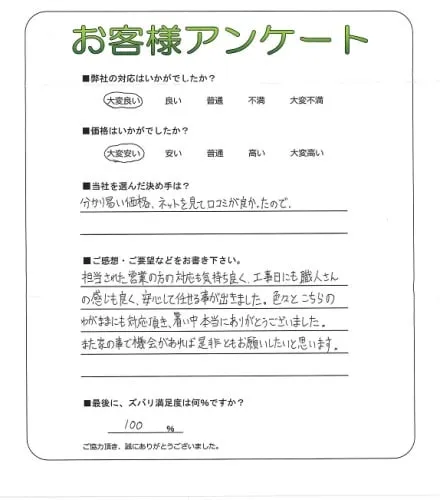 お客様アンケート
■弊社の対応はいかがでしたか?
大変良い 良い 普通 不満 大変不満
■価格はいかがでしたか?
大変安い 安い 普通 高い 大変高い
■当社を選んだ決め手は?
分かり易い価格、ネットを見て口コミが良かったので、
■ご感想・ご要望などをお書き下さい。
担当された営業の方の対応も気持ち良く、工事日にも職人さん
の感じも良く、安心して任せる事が出きました。色々とこちらの
わがままにも対応頂き、暑い中本当にありがとうございました。
また家の事で機会があれば是非ともお願いしたいと思います。
■最後に、ズバリ満足度は何%ですか?
100 %
ご協力頂き、誠にありがとうございました。